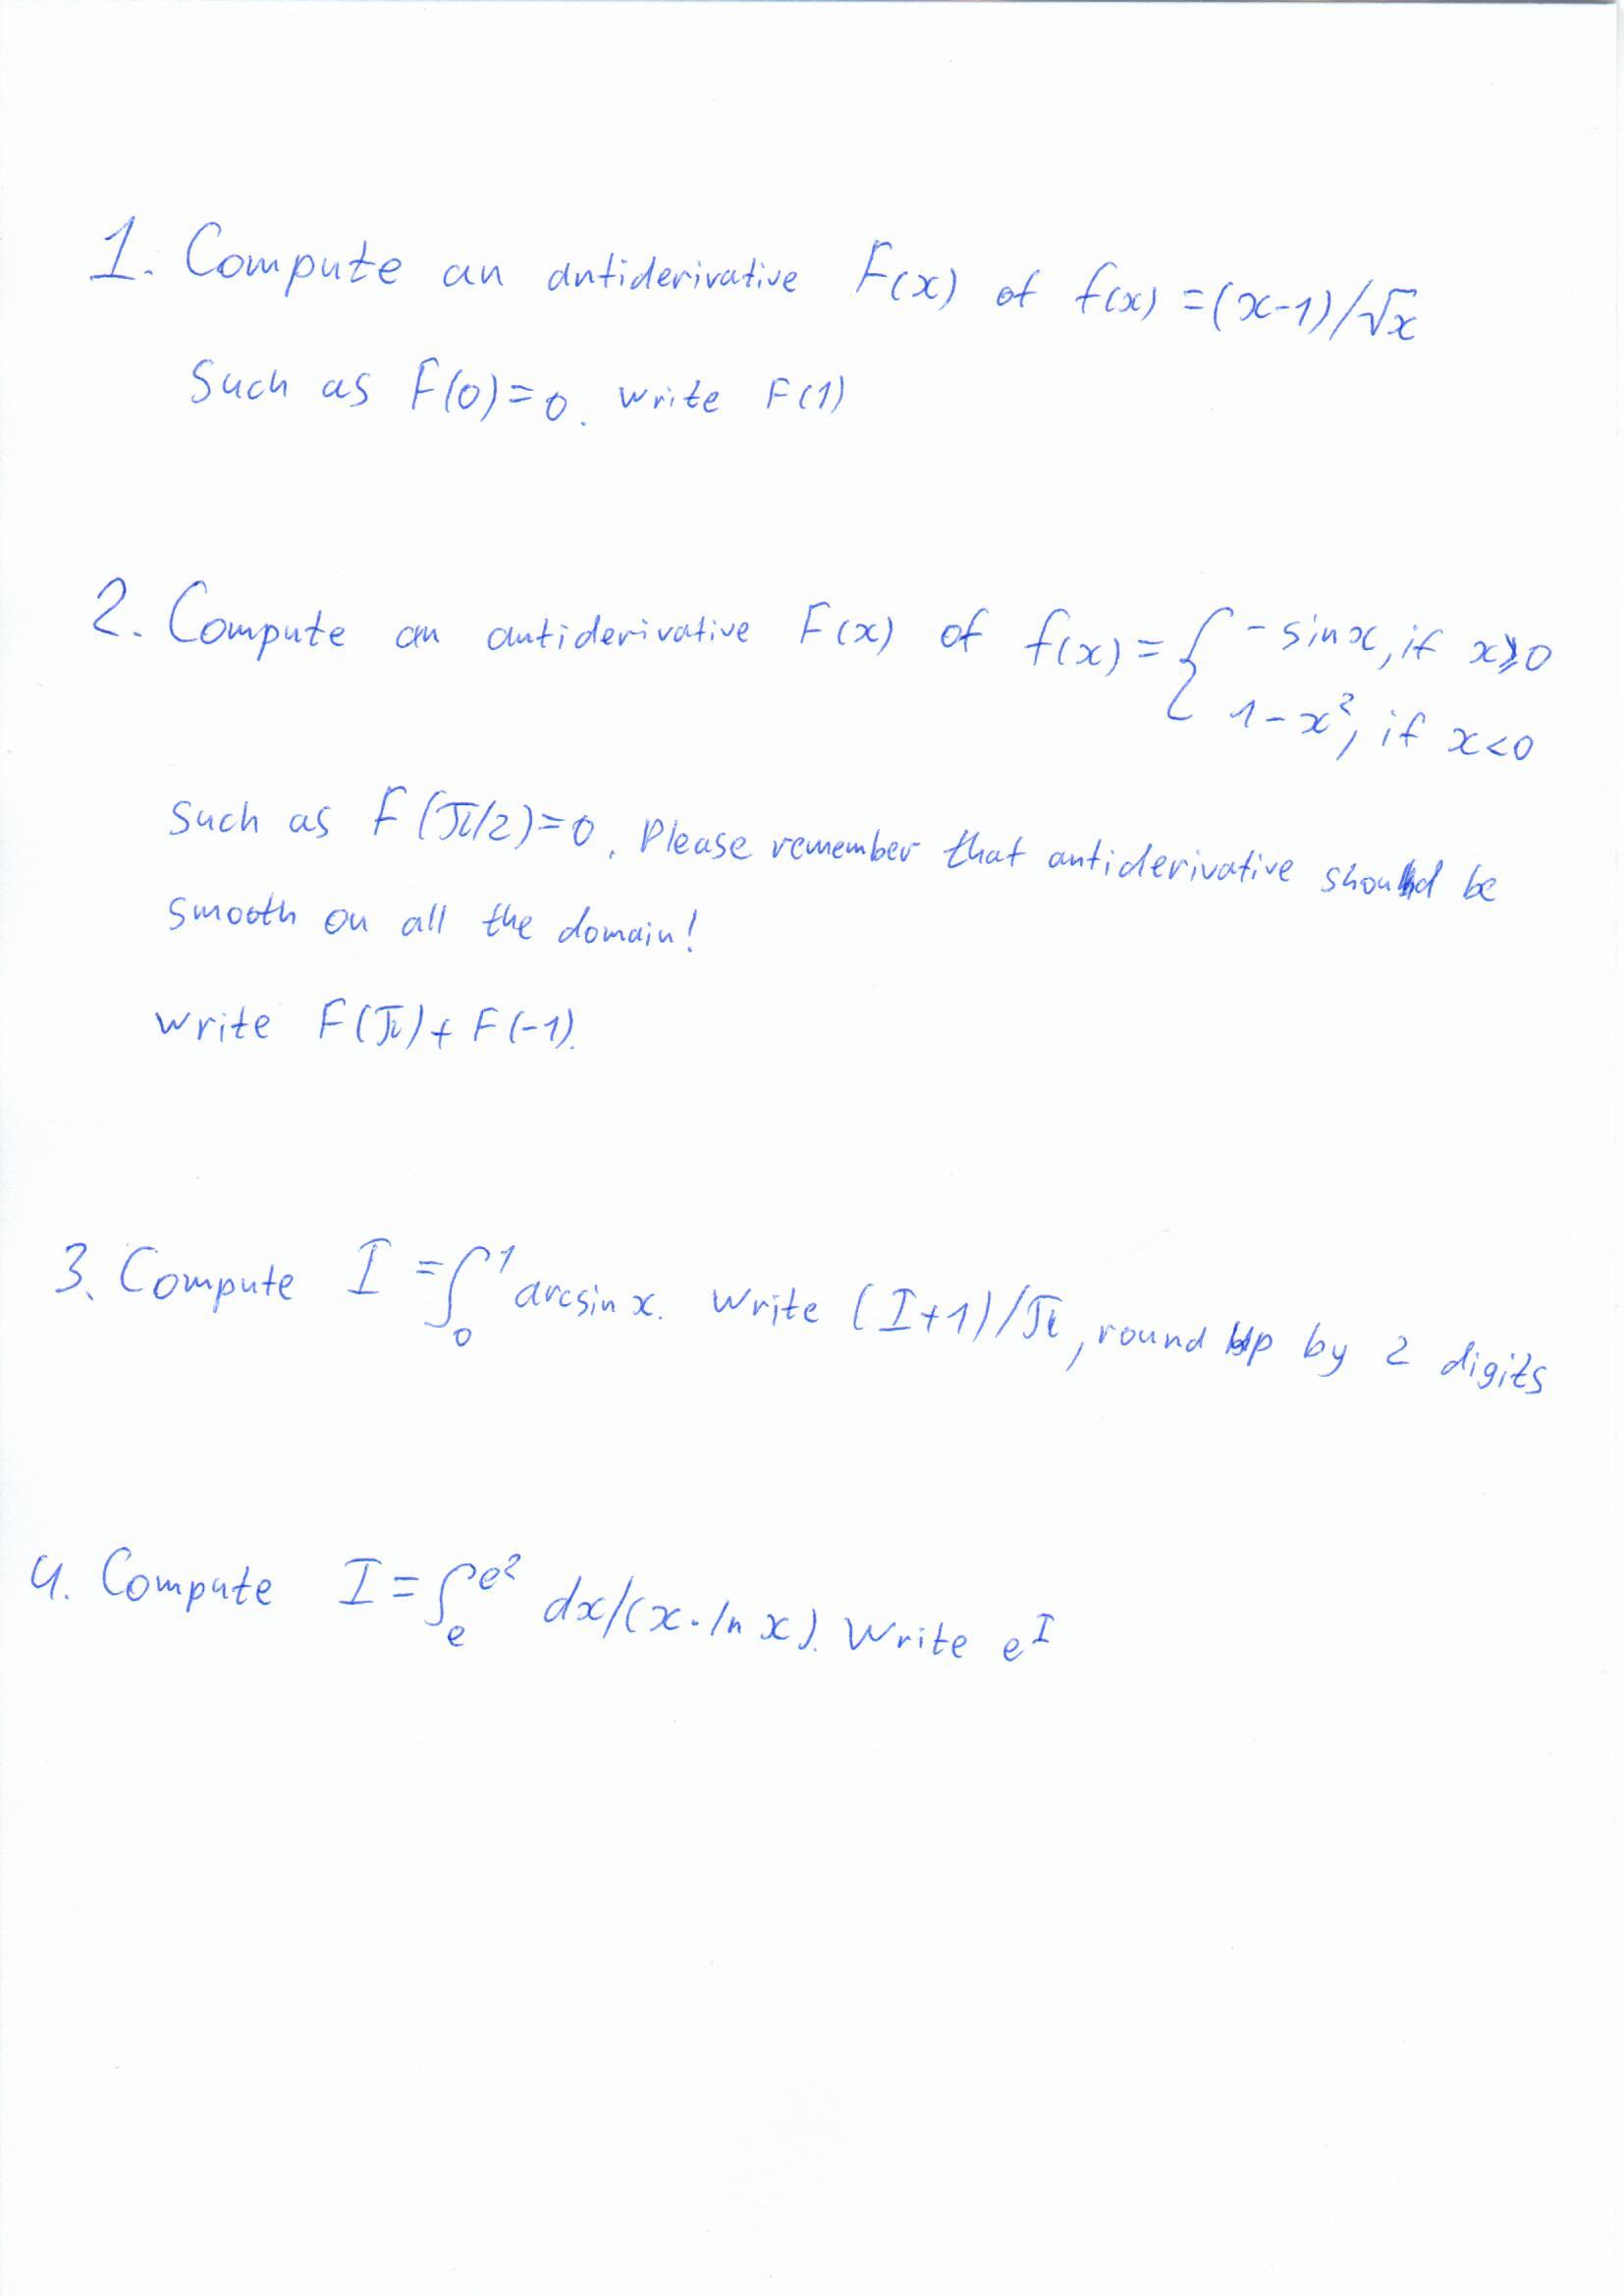 1. Compute an antiderivative F(x) of f(x) = (x-1)/√x
Such as F(0)=0. Write F(1)
2. Compute an antiderivative F(x) of f(x) = { - sin x, if x⩾0
1-x², if x<0
Such as F(π/2)=0. Please remember that antiderivative should be
smooth on all the domain!
Write F(π)+F(-1).
3. Compute I = ∫₀¹ arcsin x. Write (I+1)/π, round up by 2 digits
4. Compute I = ∫ₑ^e² dx/(x·ln x). Write e^I